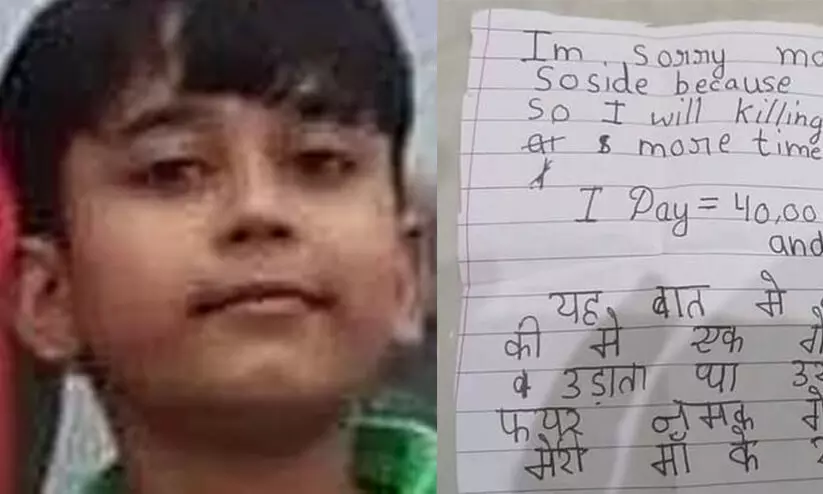 Im sorry
Soside because
So I will killing
more time
I Day = 40,00
and
यह बात मे
की मे एक
उड़ाता था
फयर नमक
मेरी माँ के